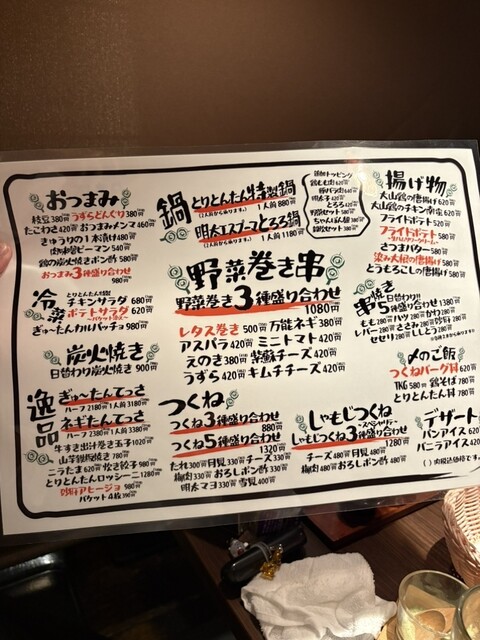 おつまみ
枝豆380円 うずらどんぐり380円
たこわさ420円 おつまみメンマ460円
きゅうりの1本漬け480円
肉味噌ピーマン540円
鶏の炭火焼きポン酢580円
おつまみ3種盛り合わせ
980円
冷菜
とりとんたん特製
チキンサラダ680円
ポテトサラダ620円
ぎゅ〜たんカルパッチョ980円
炭火焼き
日替わり炭火焼き900円
逸品
ぎゅ〜たんてっさ
ハーフ2180円 1人前3180円
ネギたんてっさ
ハーフ2380円 1人前3380円
牛すき出汁巻き玉子1020円
山芋鉄板焼き780円
ニラたま620円 炊き餃子980円
とりとんたんロッシーニ1280円
アヒージョ980円
バケット4枚390円
鍋
とりとんたん特製鍋
(2人前からあります。) 1人前880円
明太エスプーマとろろ鍋
(2人前からあります。) 1人前1180円
追加トッピング
鶏もも肉620円
豚バラ肉640円
明太子420円
とろろ420円
野菜セット580円
ちゃんぽん麺380円
雑炊セット380円
野菜巻き串
野菜巻き3種盛り合わせ
1080円
レタス巻き500円 万能ネギ380円
アスパラ420円 ミニトマト420円
えのき380円 紫蘇チーズ420円
うずら420円 キムチチーズ420円
つくね
つくね3種盛り合わせ
880円
つくね5種盛り合わせ
1320円
たれ300円 月見330円 チーズ330円
梅肉330円 おろしポン酢330円
明太マヨ330円 雪見400円
しゃもじつくね
スペシャリテ
しゃもじつくね3種盛り合わせ
1280円
チーズ480円 月見480円
梅肉480円 おろしポン酢480円
揚げ物
大山鶏の唐揚げ620円
大山鶏のチキン南蛮620円
フライドポテト520円
フライドポテト580円
さつまバター580円
染み大根の唐揚げ580円
とうもろこしの唐揚げ580円
串焼き
日替わり!!
串5種盛り合わせ1380円
もも280円 ハツ280円 かわ280円
レバー280円 ささみ280円 砂肝280円
せせり280円 ししとう280円
〆のご飯
つくねバーグ丼620円
TKG580円 鶏そば780円
とりとんたん丼780円
デザート
パンアイス620円
バニラアイス420円
( )内税込価格です。